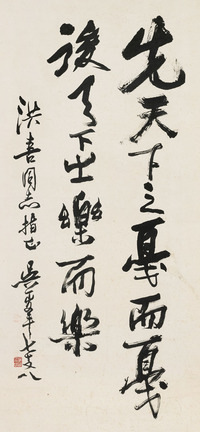 先天下之憂而憂
後天下之樂而樂
洪喜同志指正 吳丈蜀年七十八